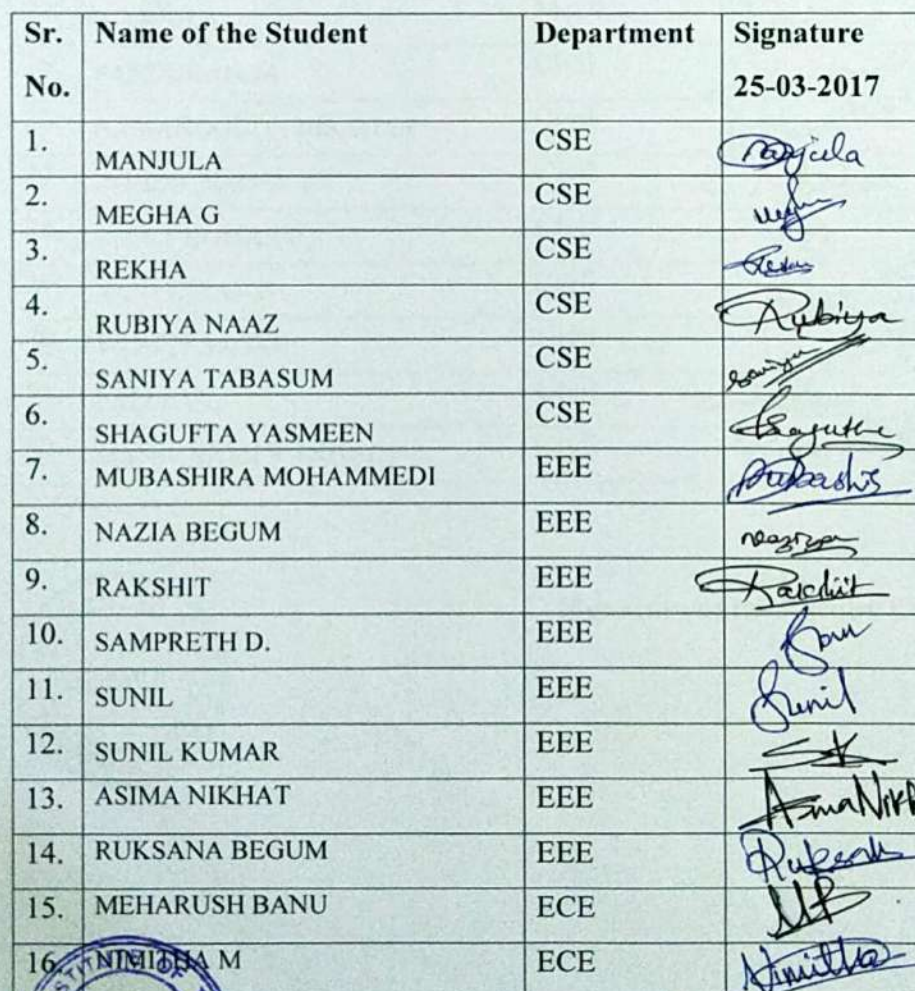 Sr. No. Name of the Student Department Signature 25-03-2017
1. MANJULA CSE Manjula
2. MEGHA G CSE Megha
3. REKHA CSE Rekha
4. RUBIYA NAAZ CSE Rubiya
5. SANIYA TABASUM CSE Saniya
6. SHAGUFTA YASMEEN CSE
7. MUBASHIRA MOHAMMEDI EEE
8. NAZIA BEGUM EEE
9. RAKSHIT EEE Rakshit
10. SAMPRETH D. EEE
11. SUNIL EEE Sunil
12. SUNIL KUMAR EEE SK
13. ASIMA NIKHAT EEE
14. RUKSANA BEGUM EEE
15. MEHARUSH BANU ECE MB
16. NIMITHA M ECE Nimitha